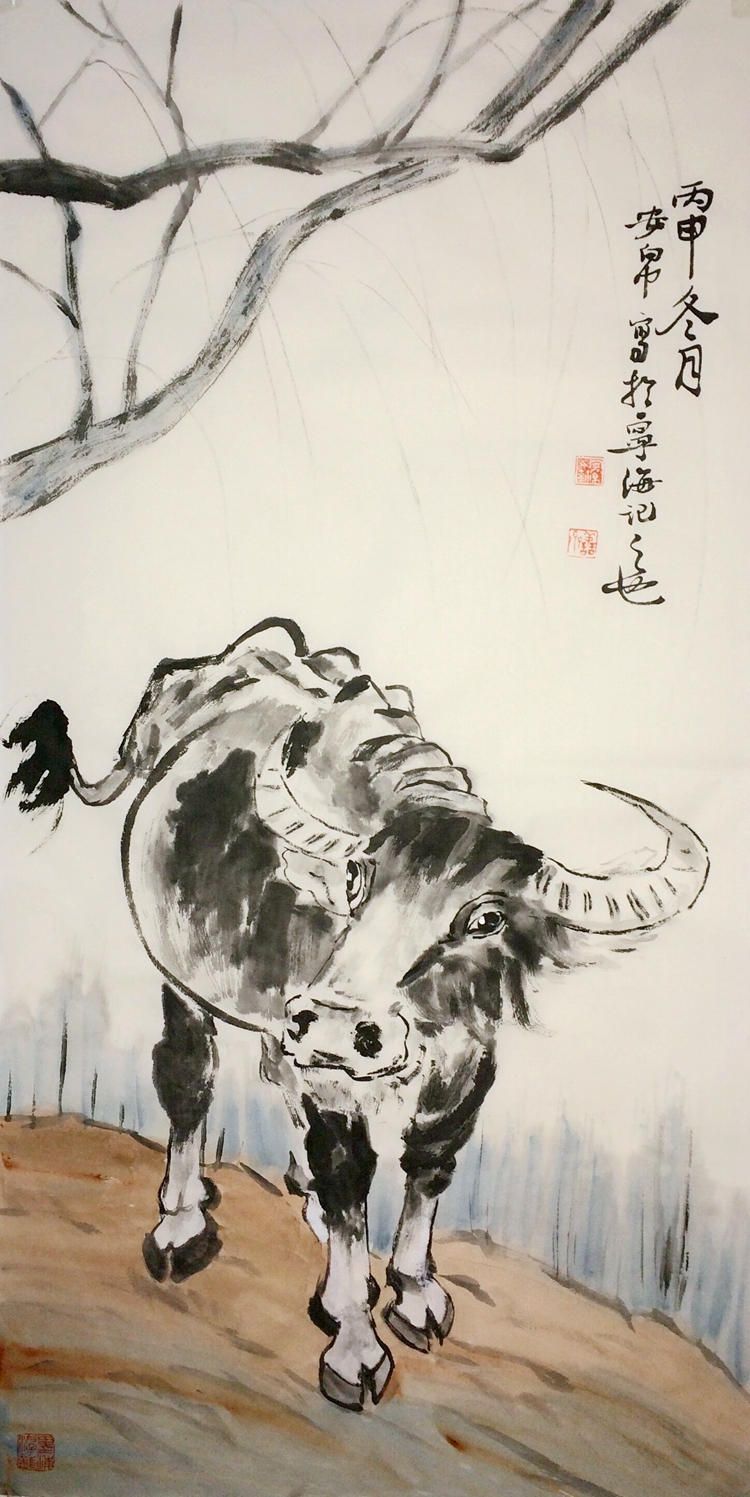 丙申冬月
安帛寫於寧海记之也